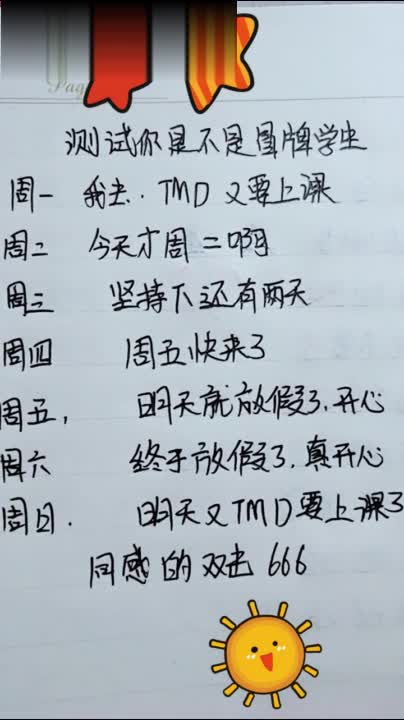 Pag
测试你是不是冒牌学生
周一 我去. TMD 又要上课
周二 今天才周二啊
周三 坚持下还有两天
周四 周五快来了
周五, 明天就放假了,开心
周六 终于放假了,真开心
周日. 明天又TMD要上课了
同感的双击 666